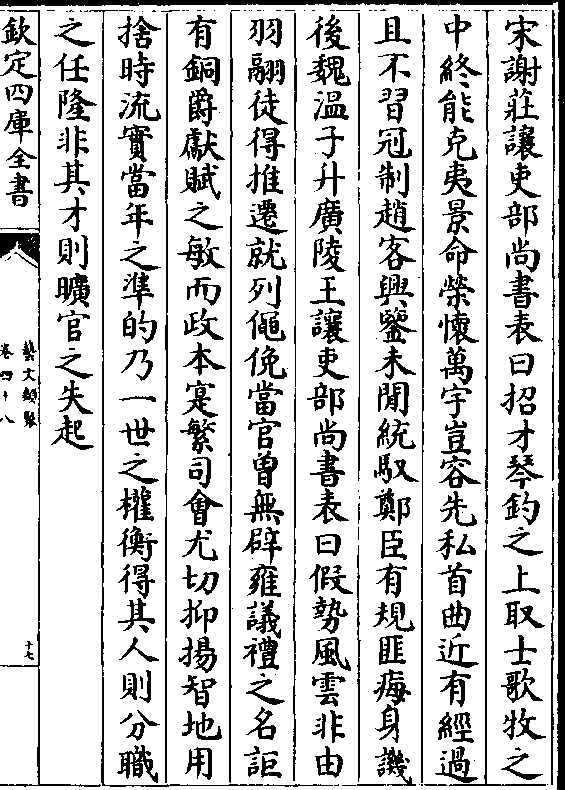 宋謝莊讓吏部尚書表曰招才琴釣之上取士歌牧之
中終能克夷景命榮懷萬宇豈容先私首曲近有經過
且不習冠制趙客興鑒未閑統馭鄭臣有規匪痗身譏
後魏溫子升廣陵王讓吏部尚書表曰假勢風雲非由
羽翮徒得推遷就列僶俛當官曾無辟雍議禮之名詎
有銅爵獻賦之敏而政本寔繁司會尤切抑揚智地用
捨時流實當年之準的乃一世之權衡得其人則分職
之任隆非其才則曠官之失起
欽定四庫全書
藝文類聚
卷四十八
十七